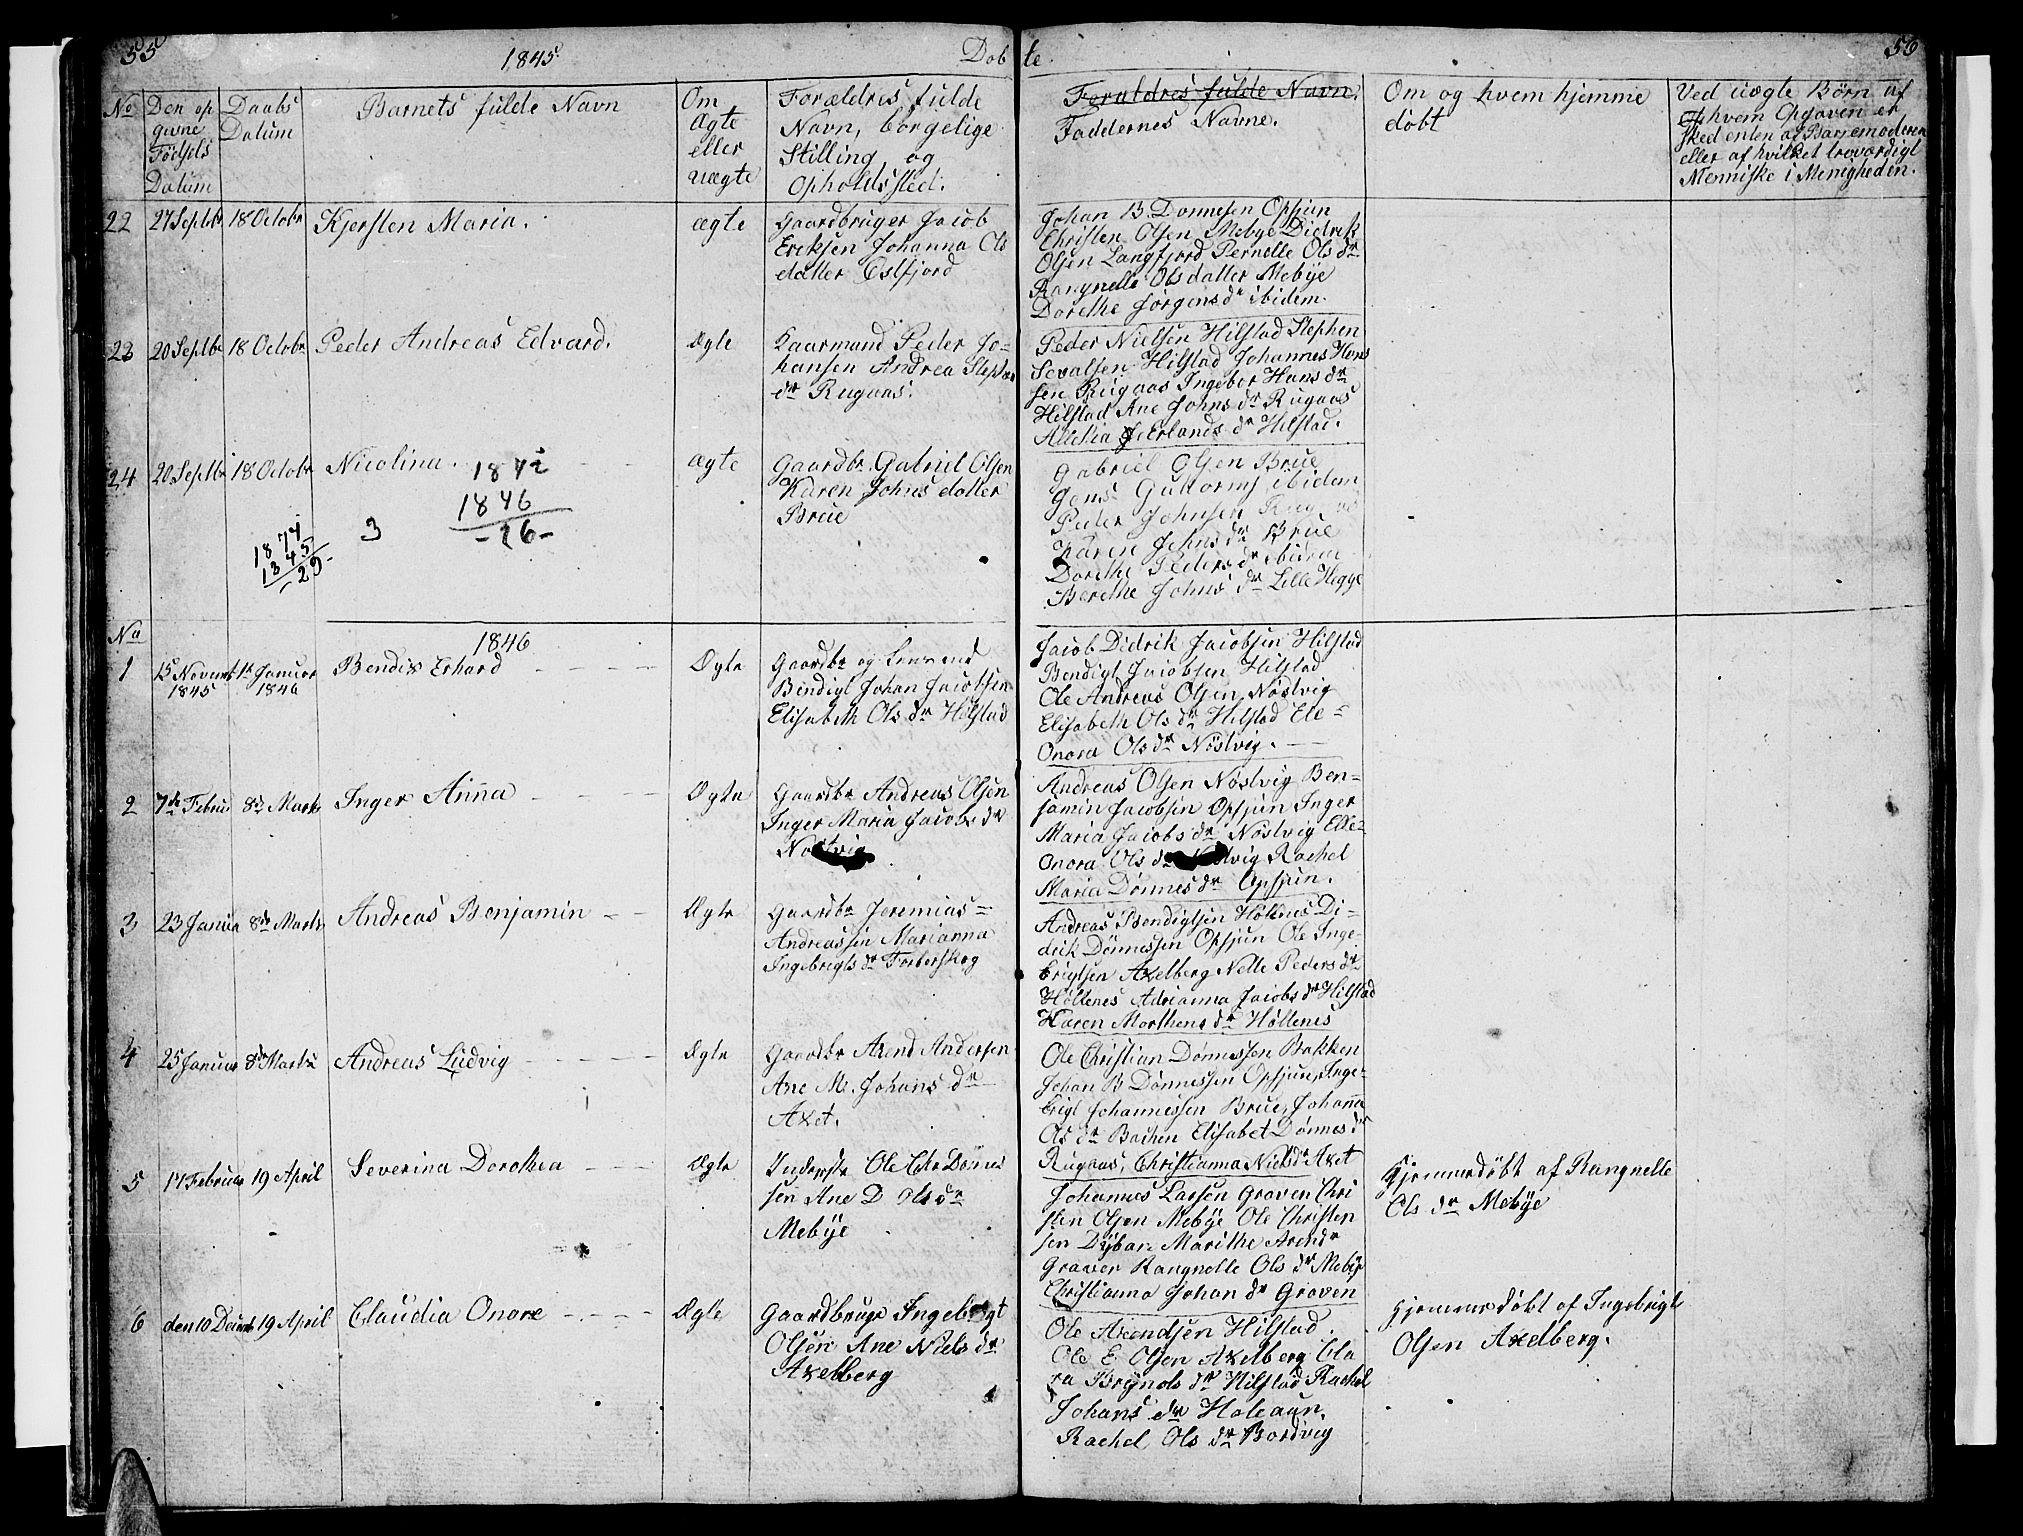 55
1845
Dobte.
56
No
Den op
givne
Fødsels
Datum
Daabs
Datum
Barnets fulde Navn
Om
Ægte
eller
uægte
Forældres fulde
Navn, borgelige
Stilling, og
Opholdssted.
Foreldres fulde Navn.
Faddernes Navne.
Om og hvem hjemme
døbt
Ved uægte Børn af
hvem Opgaven er
skedenten af Barnemoderen
eller af hvilket troværdigt
Menniske i Menigheden.
22
27 Septbr
18 Octobr
Kjersten Maria.
ægte
Gaardbruger Jacob
Ericksen Johanna Ols
datter Østfjord
Johan B. Dønnesen Opsjun
Christen Olsen Mebye Didrik
Olsen Langfjord Pernelle Ols dr
Rangnelle Olsdatter Mebye
Dorethe Jørgens dr ibidem.
23
20 Septbr
18 Octobr
Peder Andreas Edvard.
Ægte
Kaarmand Peder Jo-
hansen Andrea Stephens
dr Rugaas.
Peder Nielsen Hilstad Stephen
Sevalsen Hilstad Johannes Hans
sen Rugaas Ingebor Hans dr
Hilstad Ane Johns dr Rugaas
Erlands dr Hilstad.
24
20 Septbr
18 Octobr
Nicolina.
ægte
Gaardbr. Gabriel Olsen
Karen Johns datter
Brue
Gabriel Olsen Brue
Jens Guttorms ibidem
Peder Johnsen
Karen Johns dr Brue
Dorethe Peders dr ibidem
Berethe Johns dr Lille Hegge
1846
-26-
3
1874
1845
-29-
No
1846
1
15 Novemb
1845
1te Januar
1846
Bendix Erhard
Ægte
Gaardbr og
Bendigt Johan Jacobsen
Elisabeth Ols dr Hilstad
Jacob Didrik Jacobsen Hilstad
Bendigt Jacobsen Hilstad
Ole Andreas Olsen Nöstvig
Elisabeth Ols dr Hilstad Ele-
Onora Ols dr Nöstvig.
2
7de Februar
8de Marts
Inger Anna
Ægte
Gaardbr Andreas Olsen
Inger Maria Jacobs dr
Nöstvig
Andreas Olsen Nöstvig Ben-
jamin Jacobsen Opsjun Inger
Maria Jacobs dr Nöstvig Elle-
Onora Ols dr Nöstvig Rachel
Maria Dönnes dr Opsjun.
3
23 Januar
8de Marts
Andreas Benjamin
Ægte
Gaardbr Jeremias
Andreassen Marianna
Ingebrigts dr Forberskog
Andreas Bendigtsen Holtnes Di-
drik Dönnessen Opsjun Ole Inge-
brigtsen Axelberg Nelle Peders dr
Höltenes Adrianna Jacobs dr Hilstad
Karen Morthens dr Höltenes
4
25 Januar
8de Marts
Andreas Ludvig
Ægte
Gaardbr Arend Andersen
Ane M. Johans dr
Axet.
Ole Christian Dönnessen Bakken
Johan B Dönnessen Opsjun, Inge-
brigt Johannessen Brue, Johanna
Ols dr Bachen Elisabet Dønnes dr
Rugaas, Christianna Niels dr Axet
5
17 Februar
19 April
Severina Dorothea
Ægte
Inderste Ole Chr Dönnes
sen Ane D Ols dr
Mebÿe
Johannes Larsen Graven Chri
sten Olsen Mebÿe Ole Christen
sen Marithe Arends dr
Graven Rangnelle Ols dr Mebÿe
Christianna Johan dr Graven
Hjemmedöbt af Rangnelle
Ols dr Mebÿe
6
den 10 Decemb
19 April
Claudia Onore
Ægte
Gaardbruger Ingebrigt
Olsen Ane Niels dr
Axelberg
Ole Arendsen Hilstad.
Ole E Olsen Axelberg Cla
ra Brÿnols dr Hilstad Rachel
Johans dr Holeaun.
Rachel Ols dr Bordvig
Hjemmedöbt af Ingebrigt
Olsen Axelberg.